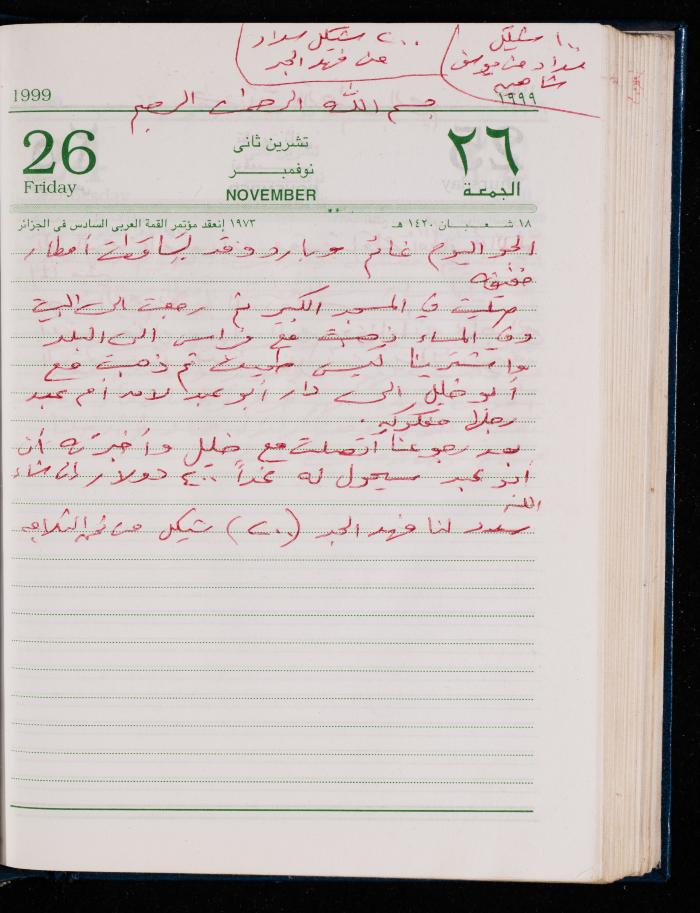 ١٠٠ شيكل
سداد من موسى
شاهين
٢٠٠ شيكل سداد
من فهد الجبر
1999
١٩٩٩
بسم الله الرحمن الرحيم
26
Friday
تشرين ثانى
نوفمبـــــر
NOVEMBER
٢٦
الجمعة
١٨ شـعـبـــان ١٤٢٠ هـ
١٩٧٣ إنعقد مؤتمر القمة العربى السادس فى الجزائر
الجو اليوم غائم وبارد وقد تساقطت أمطار
خفيفة
صليت في المسجد الكبير ثم رجعت الى البيت
وفي المساء ذهبت مع فراس الى البلد
واشترينا كيس طحين ثم ذهبت مع
أبو خليل الى دار أبو عبد لأن أم عبد
رجلها مفكوكه.
بعد رجوعنا اتصلت مع خليل وأخبرته أن
أبو عبد سيحول له غداً ٤٠٠ دولار إن شاء
الله
سدد لنا فهد الجبر (٢٠٠) شيكل من ثمن الثلاجه